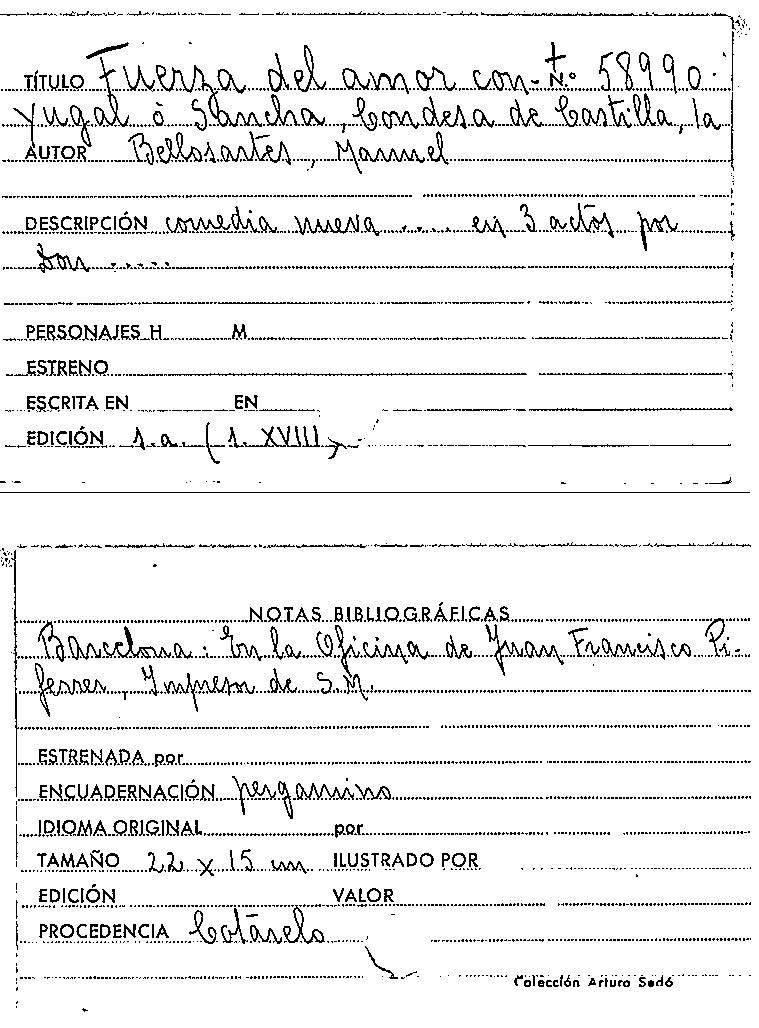 TÍTULO Fuerza del amor con- N.º 58990.
yugal ò Sancha, Condesa de Castilla, la
AUTOR Bellosartes, Manuel
DESCRIPCIÓN comedia nueva .... en 3 actos por
Don .....
PERSONAJES H M
ESTRENO
ESCRITA EN EN
EDICIÓN s.a. (s. XVIII)
NOTAS BIBLIOGRÁFICAS
Barcelona: En la Oficina de Juan Francisco Pi-
ferrer, Impresor de S.M.
ESTRENADA por
ENCUADERNACIÓN pergamino
IDIOMA ORIGINAL por
TAMAÑO 22 x 15 cm ILUSTRADO POR
EDICIÓN VALOR
PROCEDENCIA Cotarelo
Colección Arturo Sedó